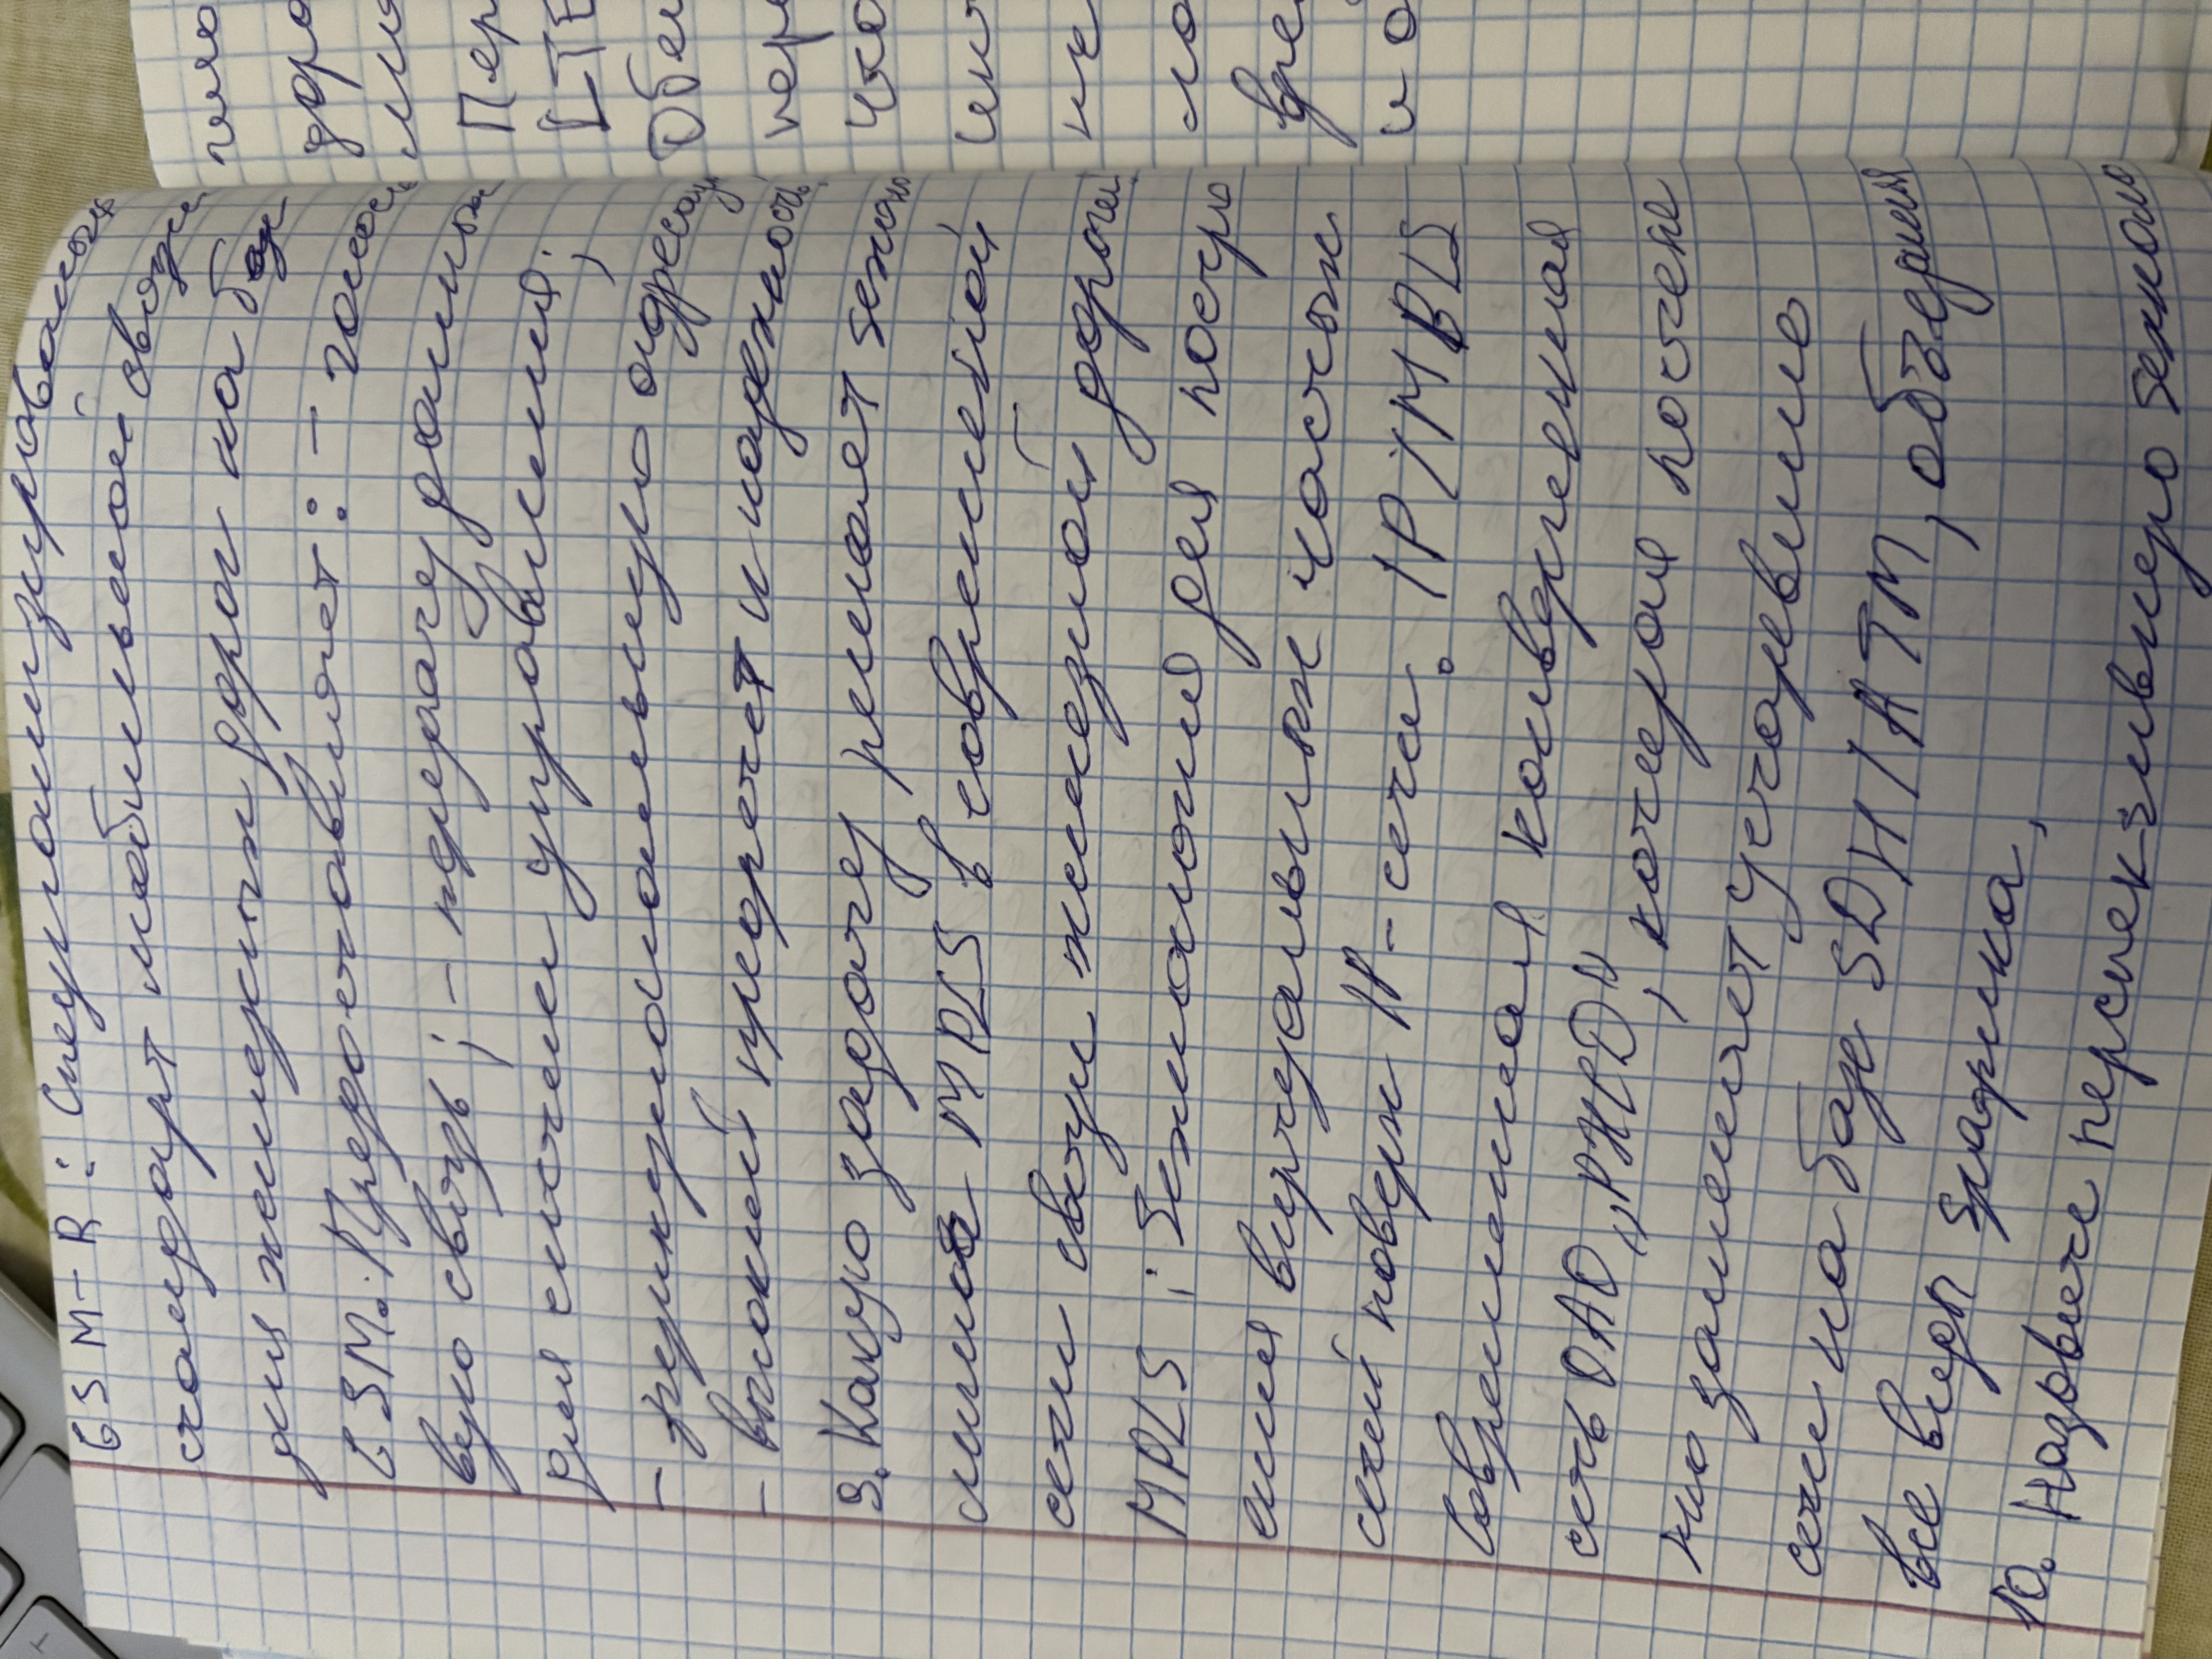 GSM-R: Специализированный
стандарт мобильной связи
для железных дорог на базе
GSM. Предоставляет: - голосо
вую связь; - передачу данных
для систем управления;
- функциональную адресац
- высокий приоретет и надежность
9. Какую задачу решает техно
логия MPLS в современной
сети связи железной дороги
MPLS: Технология для постро
ения виртуальных частных
сетей поверх IP-сети. IP/MPLS
Современная конвергентная
сеть ОАО "РЖД", которая постепен
но заменяет устаревшие
сети на базе SDH/ATM, объединяя
все виды трафика,
10. Назовите перспективную техноло
Пер
LTE
Обес